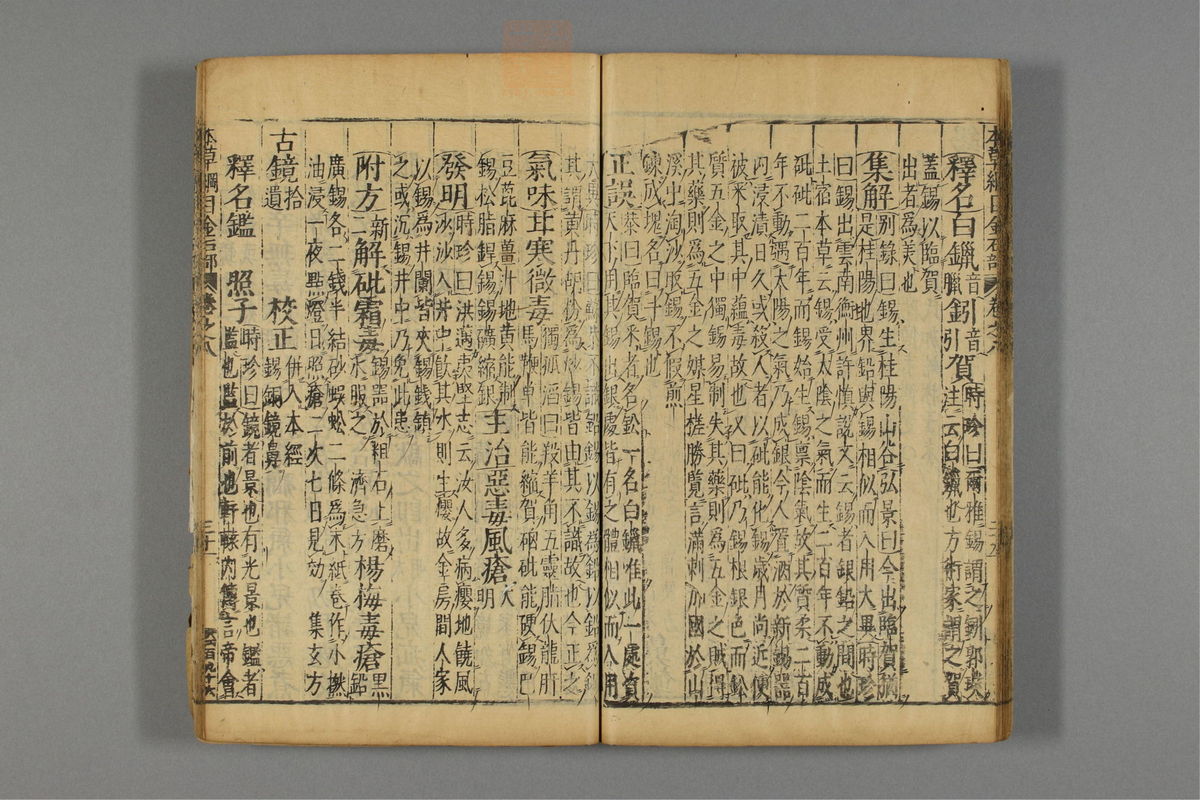 釋名白鑞音臘鈏音引賀時珍曰爾雅錫謂之鈏郭璞
注云白鑞也方術家謂之賀
蓋錫以臨賀
出者為美也
集解別錄曰錫生桂陽山谷弘景曰今出臨賀猶
是桂陽地界鉛與錫相似而入用大異時珍
曰錫出雲南衡州許慎說文云錫者銀鉛之間也
土宿本草云錫受太陰之氣而生二百年不動成
砒砒二百年而錫始生錫稟陰氣故其質柔二百
年不動遇太陽之氣乃成銀今人置酒於新錫器
內浸漬日久或殺人者以砒能化錫歲月尚近便
破采取其中蘊毒故也又曰砒乃錫根銀色而鉛
質五金之中獨錫易制失其藥則為五金之賊得
其藥則為五金之媒星槎勝覽言滿剌加國於山
溪中淘沙取錫不假煎
鍊成塊名曰斗錫也
正誤恭曰臨賀采者名鈆一名白鑞惟此一處資
天下用其錫出銀處皆有之體相似而入用
大異時珍曰
其謂黃丹胡粉為炒錫皆由其不識故也今正之
氣味甘寒微毒獨孤滔曰羖羊角五靈脂伏龍肝
馬鞭草皆能縮賀硇砒能硬錫巴
豆蓖麻薑汁地黃能制
錫松脂銲錫錫礦縮銀主治惡毒風瘡大明
發明時珍曰洪邁夷堅志云汝人多病癭地饒風
沙沙入井中飲其水則生癭故金房間人家
以錫為井闌皆夾錫錢鎮
之或沉錫井中乃免此患
附方新二解砒霜毒錫器於粗石上磨水服之濟急方楊梅毒瘡黑鉛
廣錫各二錢半結砂蜈蚣二條為末紙卷作小撚
油浸一夜點燈日照瘡二次七日見效集玄方
古鏡拾遺校正併入本經錫銅鏡鼻
釋名鑑照子時珍曰鏡者景也有光景也鑑者
監也監於前也軒轅內傳言帝會
本草綱目金石部